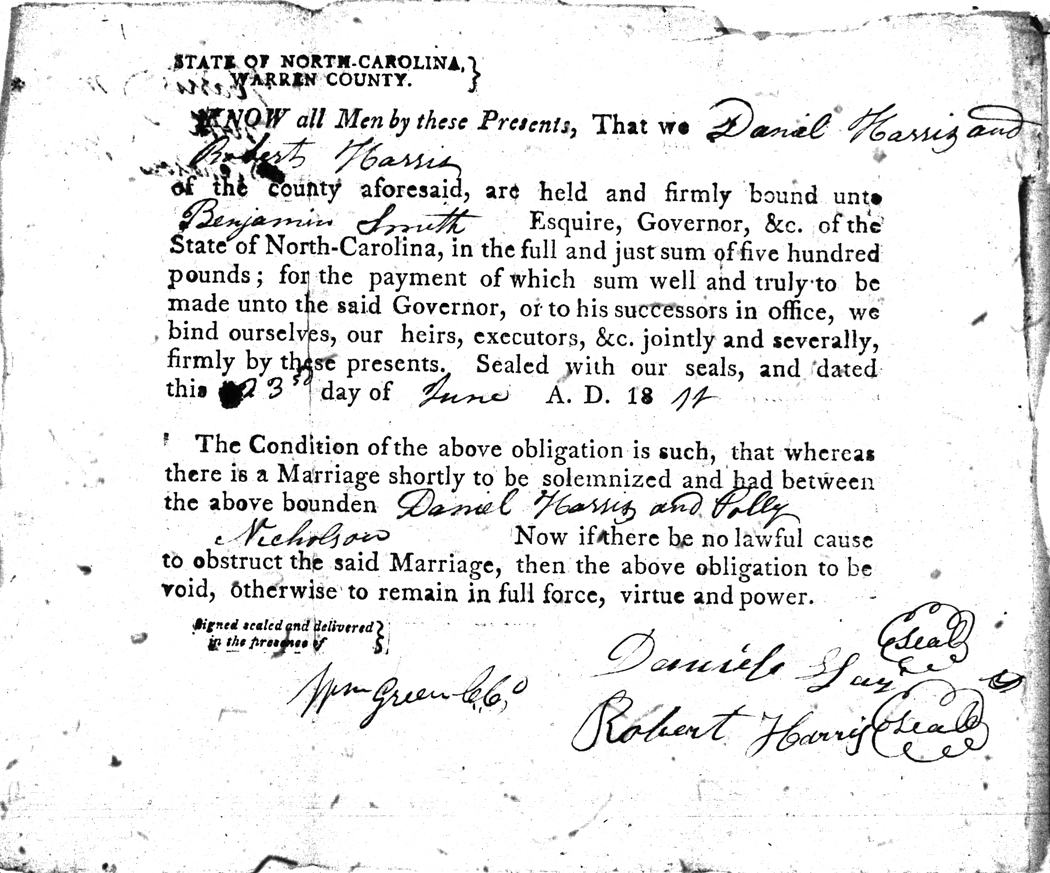 STATE OF NORTH-CAROLINA,}
WARREN COUNTY.
KNOW all Men by these Presents, That we Daniel Harris and
Robert Harris
of the county aforesaid, are held and firmly bound unto
Benjamin Smith Esquire, Governor, &c. of the
State of North-Carolina, in the full and just sum of five hundred
pounds; for the payment of which sum well and truly to be
made unto the said Governor, or to his successors in office, we
bind ourselves, our heirs, executors, &c. jointly and severally,
firmly by these presents. Sealed with our seals, and dated
this 23rd day of June A. D. 1811
The Condition of the above obligation is such, that whereas
there is a Marriage shortly to be solemnized and had between
the above bounden Daniel Harris and Polly
Nicholson Now if there be no lawful cause
to obstruct the said Marriage, then the above obligation to be
void, otherwise to remain in full force, virtue and power.
Signed sealed and delivered}
in the presence of
Daniel (Seal)
Wm Green C.C.
Robert Harris (Seal)